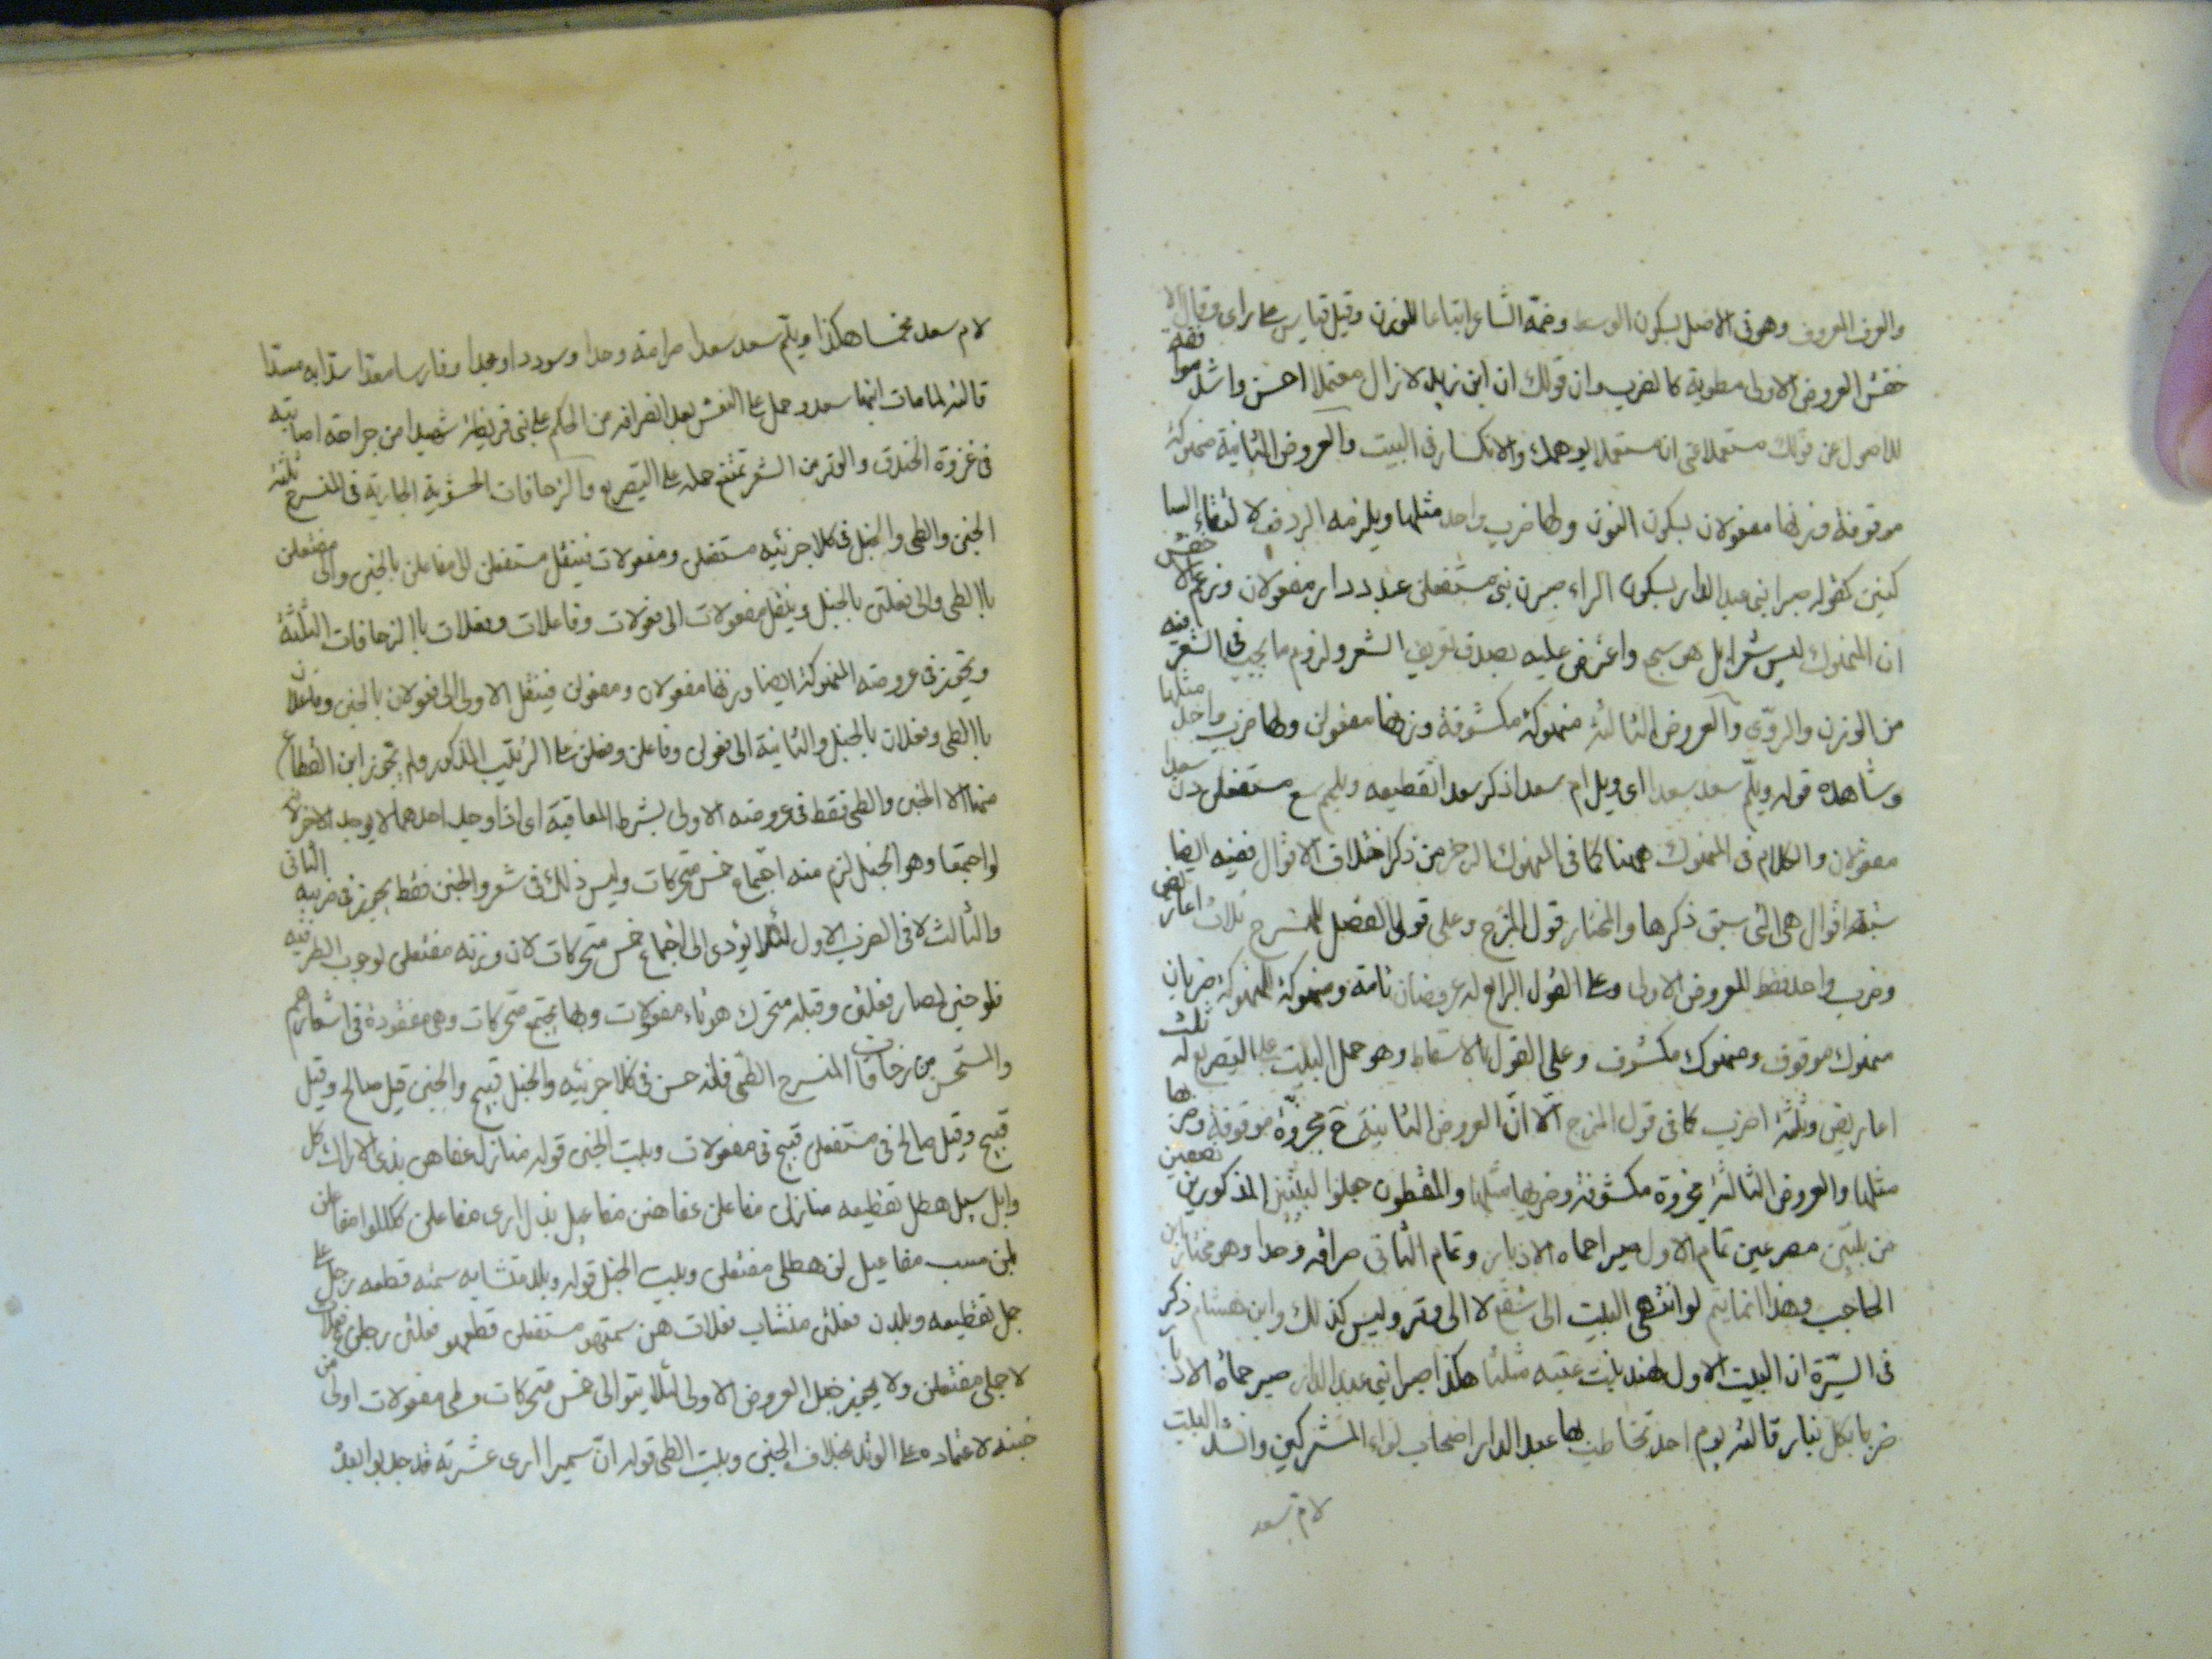 والعرف المعروف وهو في الاصل بسكون الوسط وضمة الشاعر اتباعا للوزن وقيل قياس على رأى وقال الا
خفش العروض الاولى مطوية كالضرب وان قولك ان ابن زيد لا زال معتملا احسن واشد موافقة
للاصول عن قولك مستعملا فى انه مستعملا يوهمك والانكسار فى البيت والعروض الثانية منهوكة
موقوفة وزنها مفعولان بسكون النون ولها ضرب واحد مثلها ويلزمه الردف لالتقاء السا
كنين كقوله صبرا بنى عبد الدار بسكون الراء صبرن بنى مستفعلن عبد ددار مفعولان وزعم الاخفش
ان المنهوك ليس شعرا بل هو سجع واعترض عليه بصدق تعريف الشعر ولزوم ما يجب فى الشعر فيه
من الوزن والروى والعروض الثالثة منهوكة مكشوفة وزنها مفعولن ولها ضرب واحد مثلها
وشاهده قوله ويلم سعد سعدا اى ويل ام سعد اذكر سعدا تقطيعه ويلمم سع مستفعلن دن سعدا
مفعولن والكلام فى المنهوك ههنا كما فى المنهوك الرجز من ذكر اختلاف الاقوال ففيه ايضا
ستة اقوال هى التى سبق ذكرها والمختار قول المزج وعلى قول الفصل للمنسرح ثلاث اعاريض
وضرب واحد فقط للعروض الاولى وعلى القول الرابع له عروضان تامة ومنهوكة للمنهوكة ضربان
منهوك موقوف ومنهوك مكشوف وعلى القول بالاسقاط وهو حمل البيت على التصريع له ثلث
اعاريض وثلثة اضرب كما فى قول المزج الا ان العروض الثانية مجزوة موقوفة وضربها
مثلها والعروض الثالثة مجزوة مكشوفة وضربها مثلها والمقطون جعلوا البيتين المذكورين نصفين
من بيتين مصرعين تمام الاول صبرا حماه الادبار وتمام الثانى صرامة وحدا وهو مختار ابن
الحاجب وهذا انما يتم لو انتهى البيت الى شفع لا الى وتر وليس كذلك وابن هشام ذكر
فى السيرة ان البيت الاول لهند بنت عتبة مثلثا هكذا صبرا بنى عبد الدار صبر حماة الادبار
ضربا بكل بتار قالته يوم احد تخاطب بها عبد الدار اصحاب لواء المشركين وانشد البيت
لام سعد
لام سعد مخمسا هكذا ويلم سعد سعدا صرامة وحدا وسوددا ومجدا وفارسا معدا سد ا به مسدا
قالته لما مات ابنها سعد وحمل على النعش بعد انصرافه من الحكم على بنى قريظة شهيدا من جراحة اصابته
فى غزوة الخندق والوتر من الشعر يمتنع حمله على التصريع والزحافات الحشوية الجارية فى المنسرح ثلثة
الخبن والطى والخبل فى كلا جزئيه مستفعلن ومفعولات فينقل مستفعلن الى مفاعلن بالخبن والى مفتعلن
باالطى والى فعلتن بالخبل وينقل مفعولات الى فعولات وفاعلات وفعلات باالزحافات الثلثة
ويجوز فى عروضه المنهوكة ايضا وزنها مفعولان ومفعولن فينقل الاولى الى فعولان بالخبن وفاعلان
باالطى وفعلان بالخبل والثانية الى فعولن وفاعلن وفعلن على الترتيب المذكور ولم يجوز ابن القطاع
منها الا الخبن والطى فقط فى عروضه الاولى بشرط المعاقبة اى اذا وجد احدهما لا يوجد الاخر لانه
لو اجتمعا وهو الخبل لزم منه اجتماع خمس متحركات وليس ذلك فى شعر والخبن فقط يجوز فى ضربيه الثانى
والثالث لا فى الضرب الاول لئلا يؤدى الى اجتماع خمس متحركات لان وزنه مفتعلن لوجوب الطى فيه
فلو خبن لصار فعلتن وقبله متحرك هو تاء مفعولات وبها يجتمع متحركات وهى مفقودة فى اشعارهم
والمستحسن من زحافات المنسرح الطى فانه حسن فى كلا جزئيه والخبل قبيح والخبن قيل صالح وقيل
قبيح وقيل صالح فى مستفعلن قبيح فى مفعولات وبيت الخبن قوله منازل عفاهن بذى الاراك كل
وابل مسبل هطل تقطيعه منازلن مفاعلن عفاهنن مفاعيل بذل ارى مفاعلن ككللوا مفاعلن
بلن مسب مفاعيل لن هطلى مفتعلن وبيت الخبل قوله وبلد متشابه سمته قطعه رجل على
جمل تقطيعه وبلدن فعلتن متشاب فعلات هن سمتهو مستفعلن قطعهو فعلتن رجلن ع فعلات
لا جملى مفتعلن ولا يجوز خبل العروض الاولى لئلا يتوالى خمس متحركات وطى مفعولات اولى من
خبنه لاعتماده على الوتد بخلاف الخبن وبيت الطى قوله ان سميرا ارى عشيرته قد حدبوا